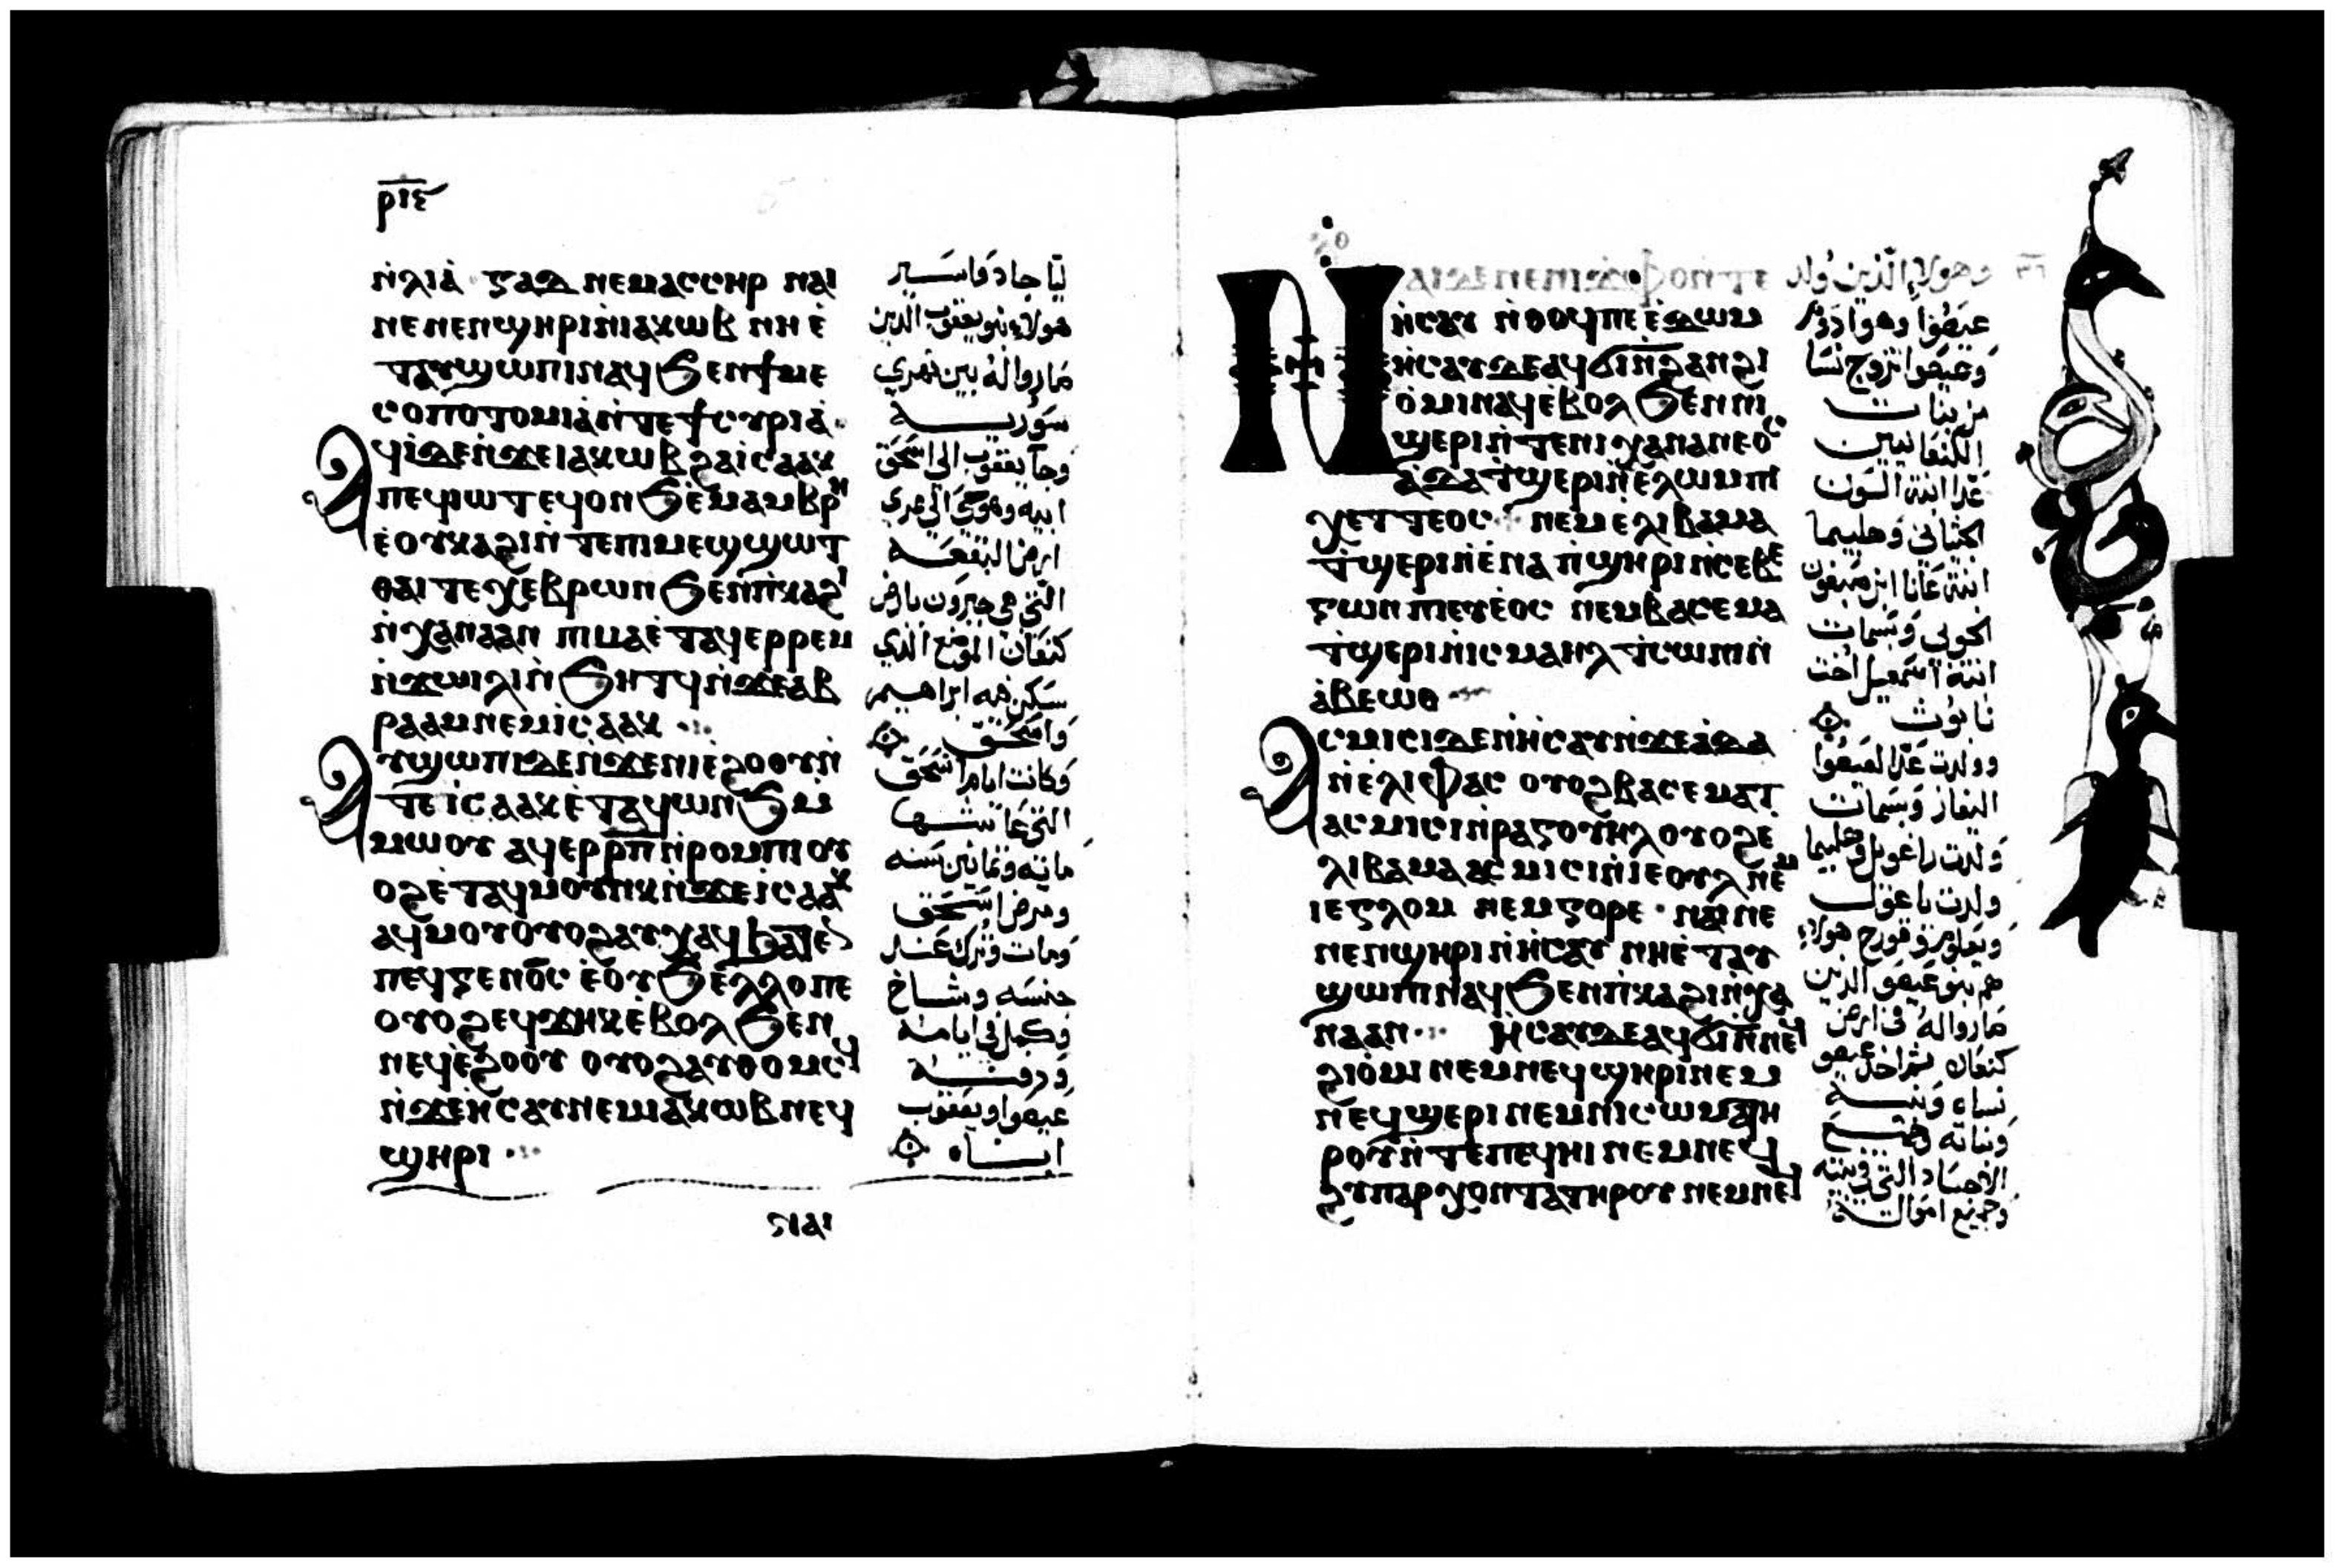 ⲣⲓⲋ
ⲛ̀ⲗⲓⲁ̀ ⲅⲁⲇ ⲛⲉⲙⲁⲥⲥⲏⲣ ⲛⲁⲓ
ⲛⲉⲛⲉⲛϣⲏⲣⲓⲛ̀ⲓⲁⲕⲱⲃ ⲛⲏⲉ̀
ⲧⲁⲩϣⲱⲡⲓⲛⲁϥϧⲉⲛϯⲙⲉ
ⲥⲟⲡⲟⲧⲟⲙⲓⲁ̀ⲛ̀ⲧⲉϯⲥⲩⲣⲓⲁ̀
ⲁϥⲓ̀ⲇⲉⲛ̀ϫⲉⲓⲁⲕⲱⲃ ϩⲁⲓ̀ⲥⲁⲁⲕ
ⲡⲉϥⲓⲱⲧ ⲉϥⲟⲛϧ ⲉ̀ⲙⲁⲙⲃⲣⲏ
ⲉ̀ⲟⲩⲃⲁⲕⲓⲛ̀ⲧⲉⲡⲓⲙⲉϣϣⲱⲧ
ⲑⲁⲓ ⲧⲉ ⲭⲉⲃⲣⲱⲛ ϧⲉⲛⲡ̀ⲕⲁϩⲓ
ⲛ̀ⲭⲁⲛⲁⲁⲛ ⲡⲓⲙⲁⲉ̀ⲧⲁϥⲉⲣⲣⲉⲙ
ⲛ̀ϫⲱⲓⲗⲓⲛ̀ϧⲏⲧϥⲛ̀ϫⲉⲁⲃ
ⲣⲁⲁⲙⲛⲉⲙⲓ̀ⲥⲁⲁⲕ
ⲁⲩϣⲱⲡⲓⲇⲉⲛ̀ϫⲉⲛⲓⲉ̀ϩⲟⲟⲩⲛ̀
ⲧⲉⲓ̀ⲥⲁⲁⲕ ⲉ̀ⲧⲁϥⲱⲛϧ ⲙ̀
ⲙⲱⲟⲩ ⲁϥⲉⲣⲣ̅ⲡ̅ⲛ̀ⲣⲟⲙⲡⲓ ⲟⲩ
ⲟϩⲉ̀ⲧⲁϥⲙⲟⲩⲛⲕⲛ̀ϫⲉⲓ̀ⲥⲁⲁⲕ
ⲁϥⲙⲟⲩⲟⲩⲟϩⲁⲩⲭⲁϥ ϧⲁⲧⲉⲛ
ⲡⲉϥⲅⲉⲛⲟⲥ ⲉ̀ⲟⲩϧⲉⲗⲗⲟⲡⲉ
ⲟⲩⲟϩⲉϥϫⲏⲕⲉ̀ⲃⲟⲗ ϧⲉⲛ
ⲛⲉϥⲉ̀ϩⲟⲟⲩ ⲟⲩⲟϩⲁⲩⲑⲟⲙⲥϥ
ⲛ̀ϫⲉⲏ̀ⲥⲁⲩⲛⲉⲙⲓⲁⲕⲱⲃ ⲛⲉϥ
ϣⲏⲣⲓ
ليّا جاد واسير
هولاء بنو يعقوب الذين
صاروا له بين نهري
سورية
وجآ يعقوب الى اسحق
ابيه وهو حي الى ممري
ارض البقعه
التي هي حبرون بارض
كنعان الموضع الذي
سكن فيه ابراهيم
واسحق
وكانت ايام اسحق
التي عاشها
مايه وثمانين سنه
ومرض اسحق
ومات وترك عند
جنسه وشاخ
وكمل في ايامه
ودفنه
عيصوا ويعقوب
ابناه
ⲛⲁⲓ
ⲏ̀ⲥⲁⲩ ⲛ̀ⲑⲟϥⲡⲉ ⲉ̀ⲇⲱⲙ
ⲏ̀ⲥⲁⲩⲇⲉⲁϥϭⲓⲛ̀ϩⲁⲛϩⲓ
ⲟ̀ⲙⲓⲛⲁϥⲉ̀ⲃⲟⲗ ϧⲉⲛⲛⲓ
ϣⲉⲣⲓⲛ̀ⲧⲉⲛⲓⲭⲁⲛⲁⲛⲉⲟⲥ
ⲁ̀ⲇⲁⲧ̀ϣⲉⲣⲓⲛ̀ⲉⲗⲱⲙⲡⲓ
ⲭⲉⲧⲧⲉⲟⲥ ⲛⲉⲙⲉⲗⲓⲃⲁⲙⲁ
ⲧ̀ϣⲉⲣⲓⲛ̀ⲉ̀ⲛⲁ ⲡ̀ϣⲏⲣⲓⲛⲥⲉⲃⲉ
ⲅⲱⲛ ⲡⲓⲉⲩⲉ̀ⲟⲥ ⲛⲉⲙⲃⲁⲥⲉⲙⲁ
ⲧ̀ϣⲉⲣⲓⲛ̀ⲓⲥⲙⲁⲏⲗ ⲧ̀ⲥⲱⲛⲓⲛ̀
ⲁ̀ⲃⲉⲱⲑ
ⲁⲥⲙⲓⲥⲓⲇⲉⲛ̀ⲏ̀ⲥⲁⲩⲛ̀ϫⲉⲁ̀ⲇⲁ
ⲛ̀ⲉⲗⲓⲫⲁⲥ ⲟⲩⲟϩⲃⲁⲥⲉⲙⲁⲧ
ⲁⲥⲙⲓⲥⲓⲛ̀ⲣⲁⲅⲟⲩⲏⲗ ⲟⲩⲟϩⲉ
ⲗⲓⲃⲁⲙⲁ ⲁⲥⲙⲓⲥⲓⲛ̀ⲓⲉⲟⲩⲗ ⲛⲉⲙ
ⲓⲉⲅⲗⲟⲙ ⲛⲉⲙⲕⲟⲣⲉ ⲛⲁⲓⲛⲉ
ⲛⲉⲛϣⲏⲣⲓⲛ̀ⲏ̀ⲥⲁⲩ ⲛⲏⲉ̀ⲧⲁⲩ
ϣⲱⲡⲓⲛⲁϥϧⲉⲛⲡ̀ⲕⲁϩⲓⲛ̀ⲭⲁ
ⲛⲁⲁⲛ ⲏ̀ⲥⲁⲩⲇⲉⲁϥϭⲓⲛ̀ⲛⲉϥ
ϩⲓⲟ̀ⲙⲓ ⲛⲉⲙⲛⲉϥϣⲏⲣⲓⲛⲉⲙ
ⲛⲉϥϣⲉⲣⲓ ⲛⲉⲙⲛⲓⲥⲱⲙⲁⲧⲏ
ⲣⲟⲩⲛ̀ⲧⲉⲡⲉϥⲏⲓ ⲛⲉⲙⲛⲉϥ
ϩⲩⲡⲁⲣⲭⲟⲛⲧⲁⲧⲏⲣⲟⲩ ⲛⲉⲙⲛⲉϥ
وهولاء الذين ولد
عيصوا وهو ادوم
وعيصوا تزوج نسا
من بنات
الكنعانيين
عدا ابنة الون
الحثاني وهليما
ابنة عانا ابن صبغون
الحوي وبسمات
ابنة اسمعيل اخت
نابوث
وولدت عدا لعيصوا
اليفاز وبسمات
ولدت راعويل وهليما
ولدت ياعول
ويعلوم وقورح هولاء
هم بنو عيصو الذين
صاروا له في ارض
كنعان ثم اخذ عيصو
نساه وبنيه
وبناته وجميع
الاجساد التي في بيته
وجميع امواله